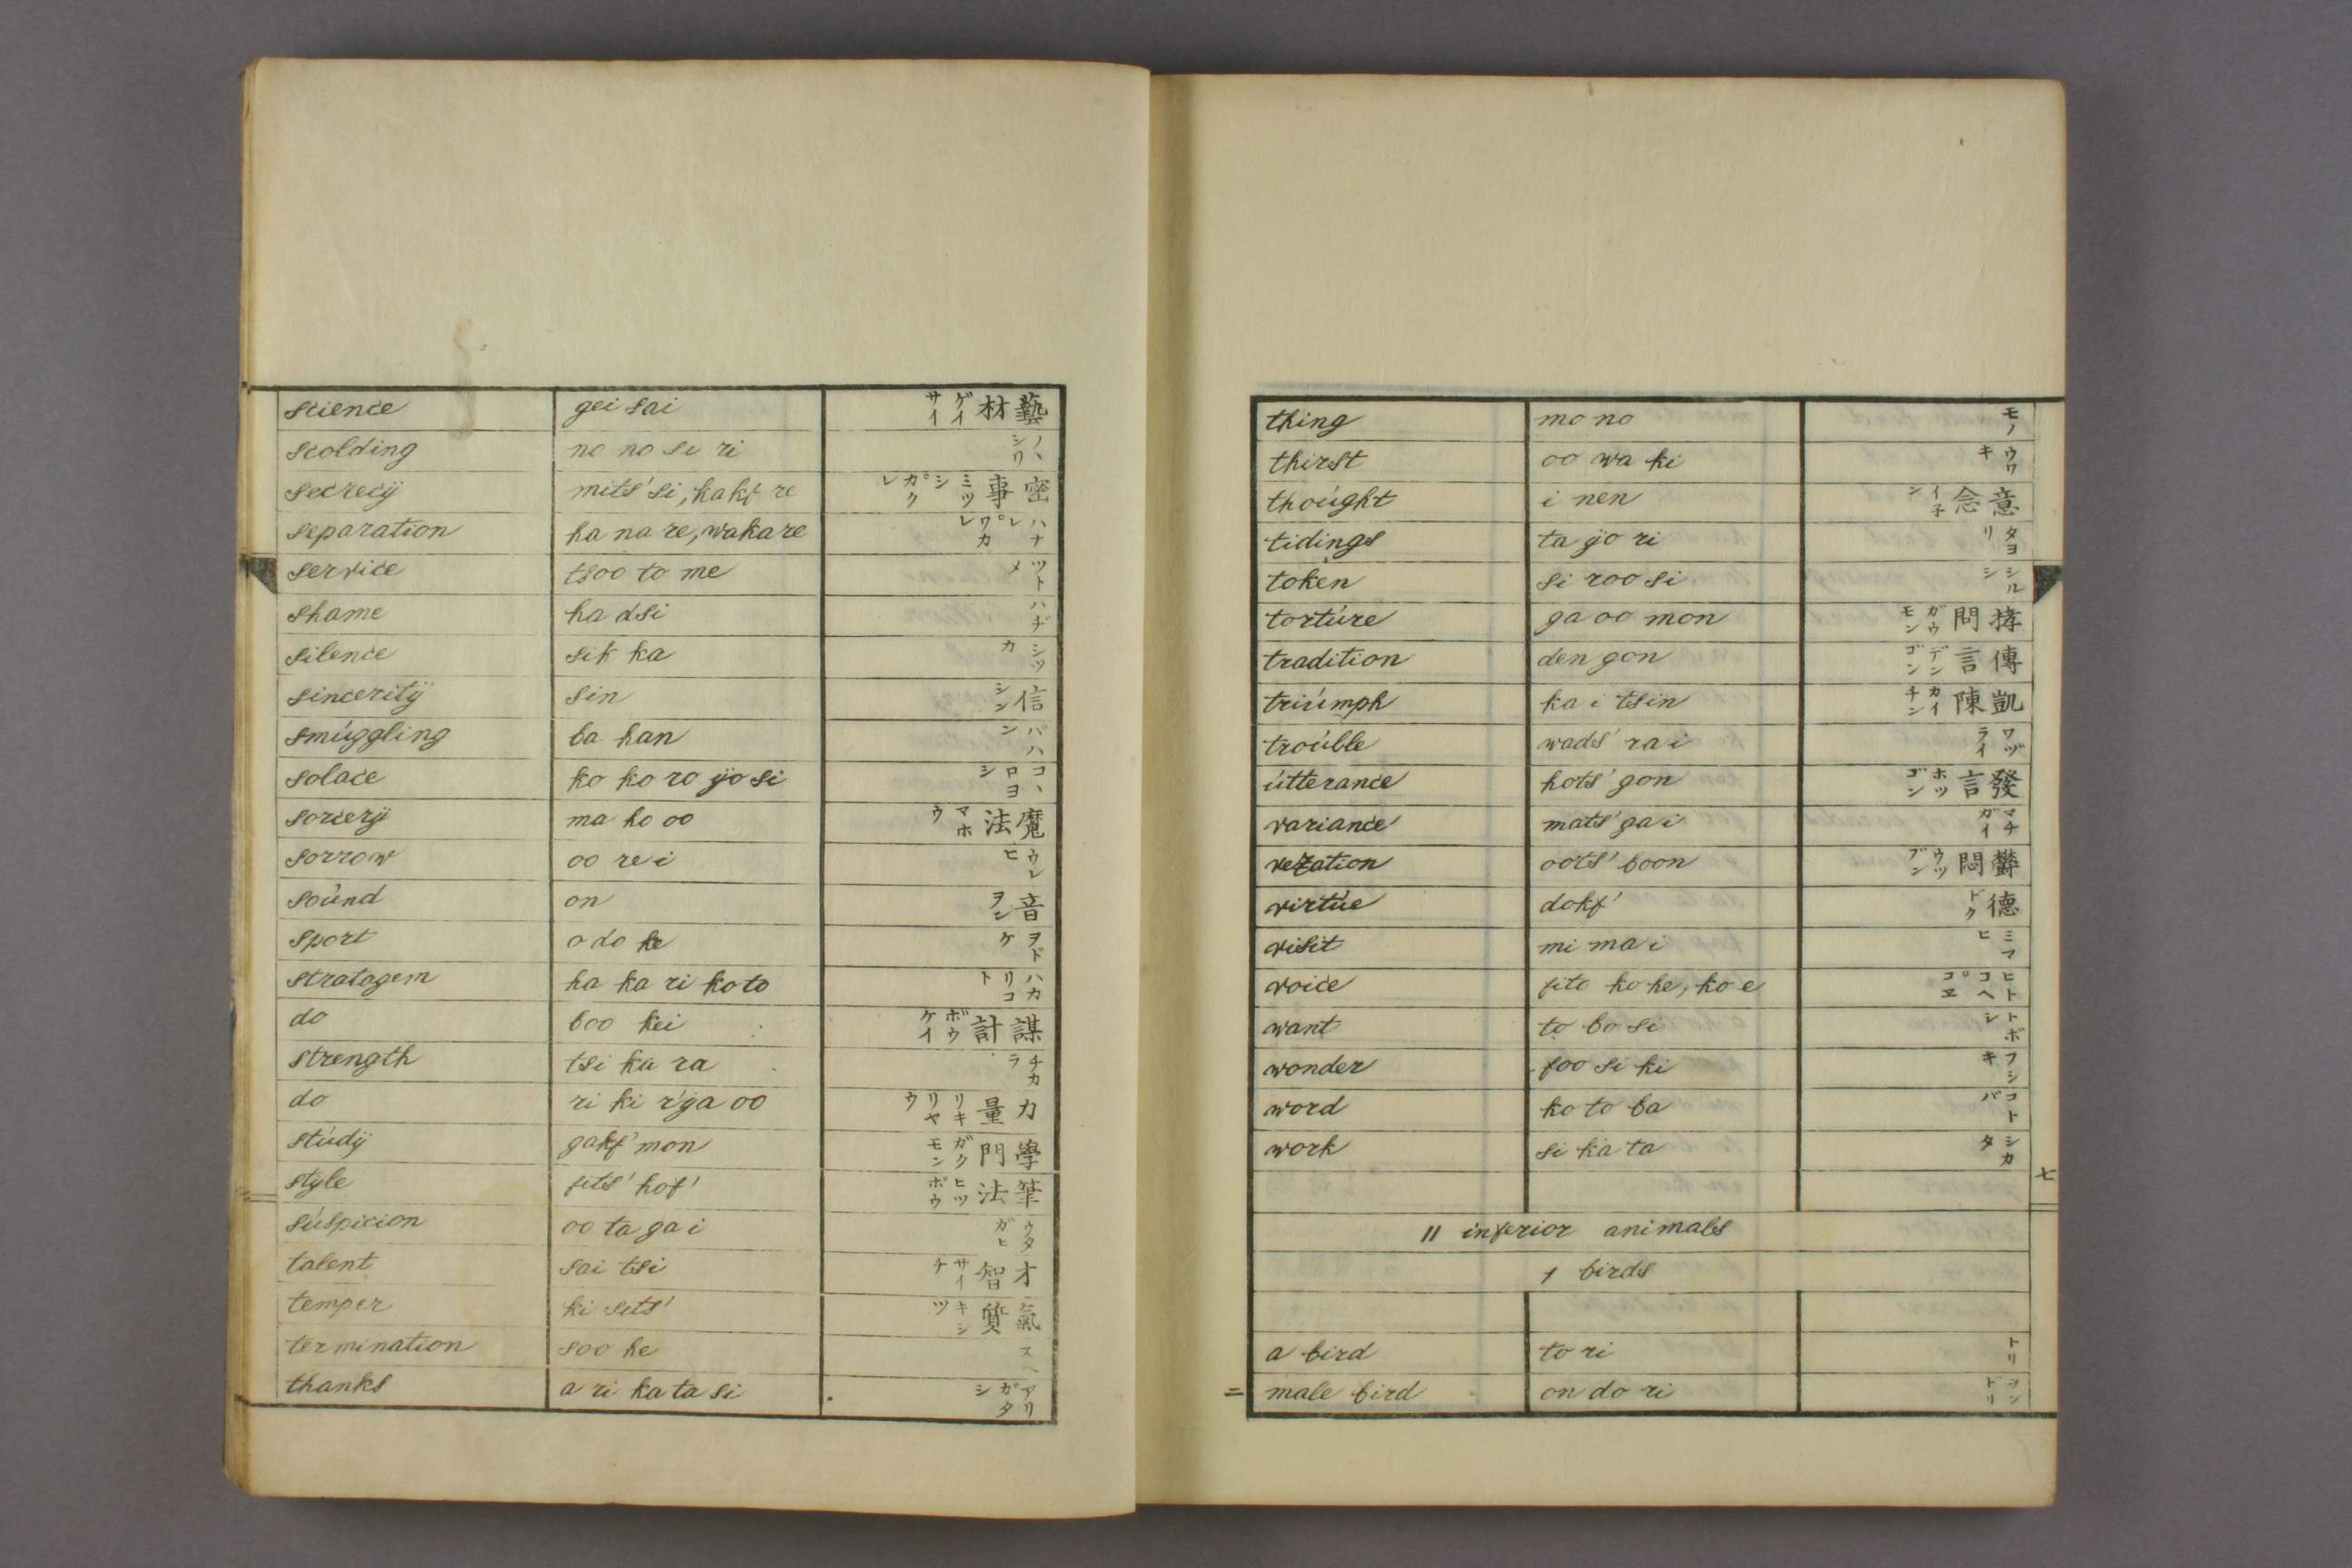 science gei sai 藝材 ゲイサイ
scolding no no si ri ノヽシリ
secrecÿ mits' si, kakf re 密事 ミツシ カクレ
separation ha na re, wakare ハナレ ワカレ
service tsoo to me ツトメ
shame ha dsi ハヂ
silence sik ka シツカ
sinceritÿ sin 信 シン
smúggling ba han バハン
solace ko ko ro jo si コヽロヨシ
sorcerÿ ma ho oo 魔法 マホウ
sorrow oo re i ウレヒ
soúnd on 音 ヲン
sport o do ke ヲドケ
stratagem ha ka ri koto ハカリコト
do boo kei 謀計 ボウケイ
strength tsi ka ra チカラ
do ri ki r'ja oo 力量 リキリヤウ
stúdÿ gakf' mon 學門 ガクモン
style fits' hof' 筆法 ヒツポウ
súspicion oo ta ga i ウタガヒ
talent sai tsi 才智 サイチ
temper ki sits' 氣質 キシツ
termination soo he スヘ
thanks a ri ka ta si アリガタシ
thing mo no モノ
thirst oo wa ki ウワキ
thoúght i nen 意念 イ子ン
tidings ta jo ri タヨリ
token si roo si シルシ
tortúre ga oo mon 拷問 ガウモン
tradition den gon 傳言 デンゴン
triúmph ka i tsin 凱陳 カイチン
troúble wads' ra i ワヅライ
útterance hots' gon 發言 ホツゴン
variance mats' ga i マチガイ
vexation oots' boon 欝悶 ウツブン
virtúe dokf' 德 ドク
visit mi ma i ミマヒ
voice fito ko he, ko e ヒトコヘ コヱ
want to bo si トボシ
wonder foo si ki フシキ
word ko to ba コトバ
work si ka ta シカタ
七
11 inferior animals
1 birds
a bird to ri トリ
male bird on do ri ヲンドリ